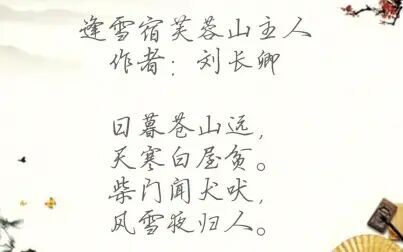 逢雪宿芙蓉山主人
作者：刘长卿
日暮苍山远，
天寒白屋贫。
柴门闻犬吠，
风雪夜归人。